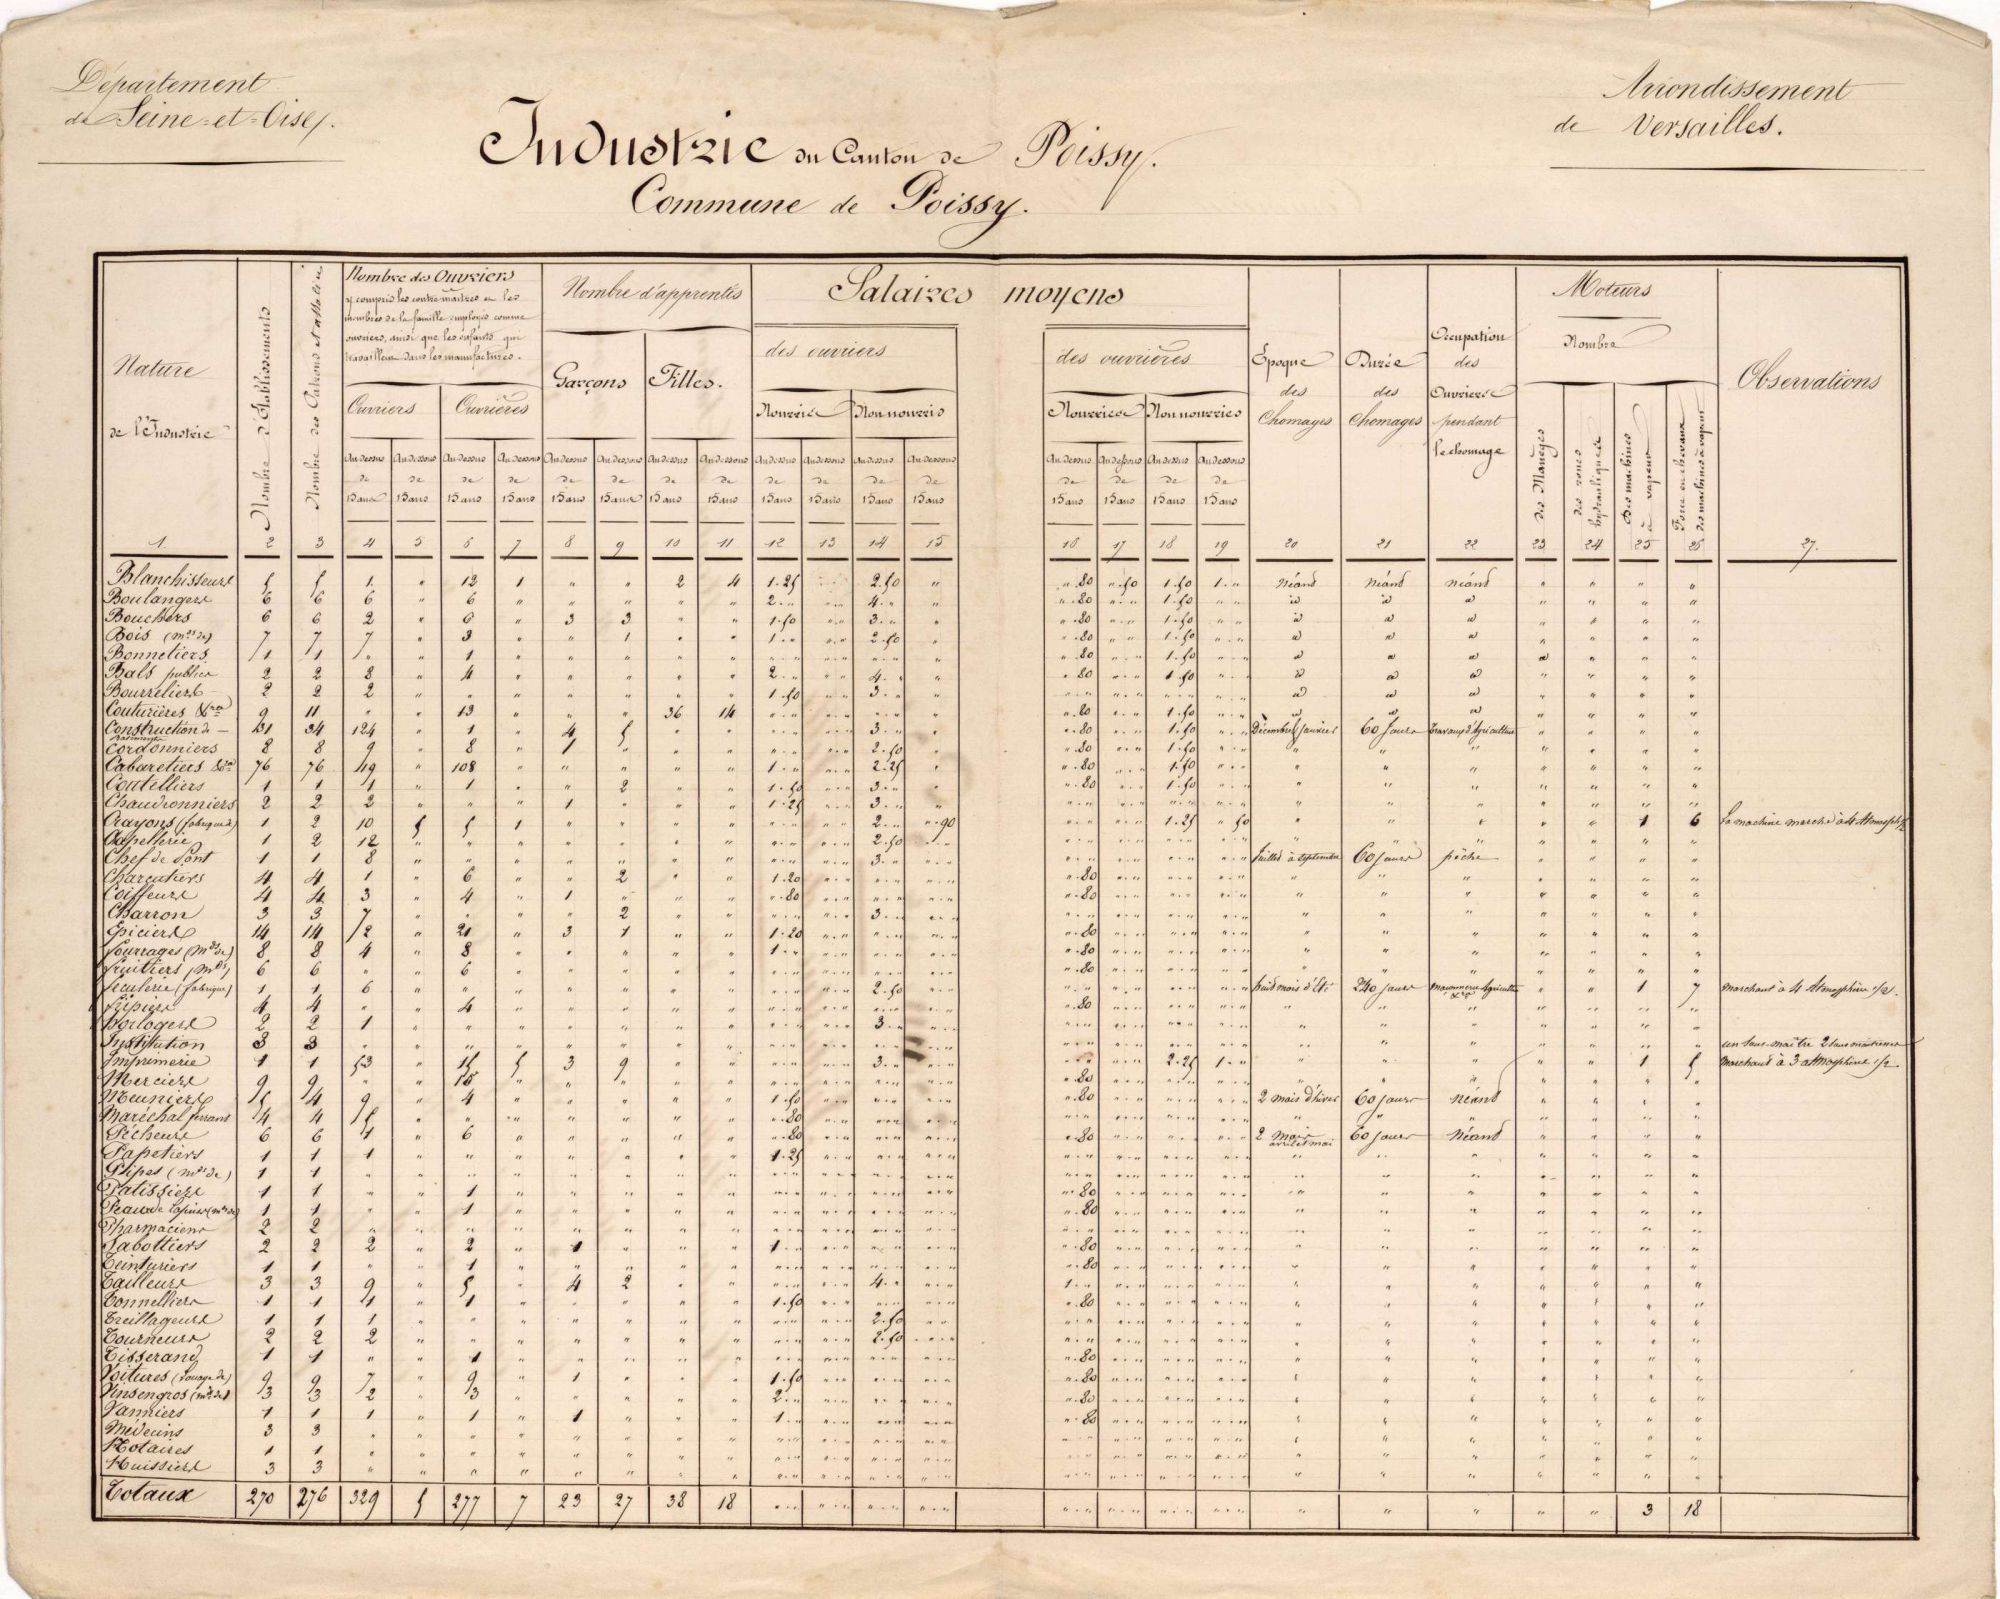 Département
de Seine-et-Oise.
Arrondissement
de Versailles.
Industrie du Canton de Poissy.
Commune de Poissy.
Nature
de l'Industrie
Nombre d'Etablissements
Nombre des Patrons et associés
Nombre des Ouvriers
y compris les contre-maitres et les
membres de la famille employés comme
ouvriers, ainsi que les enfants qui
travaillent dans les manufactures.
Ouvriers
Ouvrières
Nombre d'apprentis
Garçons
Filles.
Salaires moyens
des ouvriers
Nourris
Non nourris
des ouvrières
Nourries
Non nourries
Epoque
des
Chomages
Durée
des
Chomages
Occupation
des
Ouvriers
pendant
le chomage
Moteurs
Nombre
des Manèges
des roues hydrauliques
Des machines à vapeur
Force en chevaux des machines à vapeur
Observations
Au dessus de 15 ans
Au dessous de 15 ans
1 2 3 4 5 6 7 8 9 10 11 12 13 14 15 16 17 18 19 20 21 22 23 24 25 26 27.
Blanchisseurs 5 5 1 " 12 1 " " 2 4 1.25 2.50 " ".80 ".50 1.50 1." Néant Néant Néant
Boulangers 6 6 6 " 6 2." 4." ".80 1.50 id id id
Bouchers 6 6 2 " 6 " 3 3 1.50 3." ".80 1.50 id id id
Bois (mds de) 7 7 7 " 3 " " 1 1." 2.50 ".80 1.50 id id id
Bonnetiers 1 1 " " 1 ".80 1.50 id id id
Bals publics 2 2 8 " 4 2." 4." ".80 1.50 id id id
Bourreliers 2 2 2 1.50 3." id id id
Couturières &ra 9 11 " " 13 " " " 36 14 ".80 1.50
Construction de Batiments 31 34 124 " 1 " 4 5 3." ".80 1.50 Décembre Janvier 60 Jours travaux d'Agriculture
Cordonniers 8 8 9 " 8 " 1 2.50 ".80 1.50
Cabaretiers &ra 76 76 19 " 108 1." 2.25 ".80 1.50
Coutelliers 1 1 1 " 1 " " 2 1.50 3." ".80 1.50
Chaudronniers 2 2 2 " " " 1 1.25 3."
Crayons (fabrique de) 1 2 10 5 5 1 2." ".90 1.25 ".50 1 6 La machine marche à 4 Atmosph. 1/2
Chapellerie 1 2 12 2.50
Chef de Pont 1 1 8 3." Juillet à Septembre 60 jours pêche
Charcutiers 4 4 1 " 6 " " 2 1.20 ".80
Coiffeurs 4 4 3 " 4 " 1 ".80 ".80
Charron 3 3 7 " " " " 2 3."
Epiciers 14 14 12 " 21 " 3 1 1.20 ".80
Fourrages (mds de) 8 8 4 " 8 1." ".80
Fruitiers (mds) 6 6 " " 6 ".80
Féculerie (fabrique) 1 1 6 2.50 huit mois d'Eté 240 jours maçonnerie Agriculture &ra 1 7 marchant à 4 Atmosphère 1/2.
Fripiers 4 4 " " 4 ".80
Horlogers 2 2 1 3."
Institution 3 3 un sous-maître 2 sous maîtresses
Imprimerie 1 1 53 " 15 5 3 9 3." 2.25 1." 1 5 Marchant à 3 atmosphère 1/2.
Merciers 9 9 " " 15 ".80
Meuniers 5 14 9 " 4 1.50 ".80 2 mois d'hiver 60 jours Néant
Maréchal ferrans 4 4 5 ".80
Pêcheurs 6 6 1 " 6 ".80 ".80 2 mois avril et mai 60 jours Néant
Papetiers 1 1 1 1.25
Pipes (mds de) 1 1
Patissiers 1 1 " " 1 ".80
Peaux de lapins (mds de) 1 1 " " 1 ".80
Pharmaciens 2 2
Sabottiers 2 2 2 " 2 " 1 1." ".80
Teinturiers 1 1 " " 1 ".80
Tailleurs 3 3 9 " 5 " 4 2 4." 1."
Tonnelliers 1 1 1 " 1 1.50 ".80
Treillageurs 1 1 1 2.50
Tourneurs 2 2 2 2.50
Tisserand 1 1 " " 1 ".80
Voitures (louage de) 9 9 7 " 9 " 1 1.50 ".80
Vins en gros (mds de) 3 3 2 " 3 2." ".80
Vanniers 1 1 1 " 1 " 1 1." ".80
Médecins 3 3
Notaires 1 1
Huissiers 3 3
Totaux 270 276 329 5 277 7 23 27 38 18 3 18